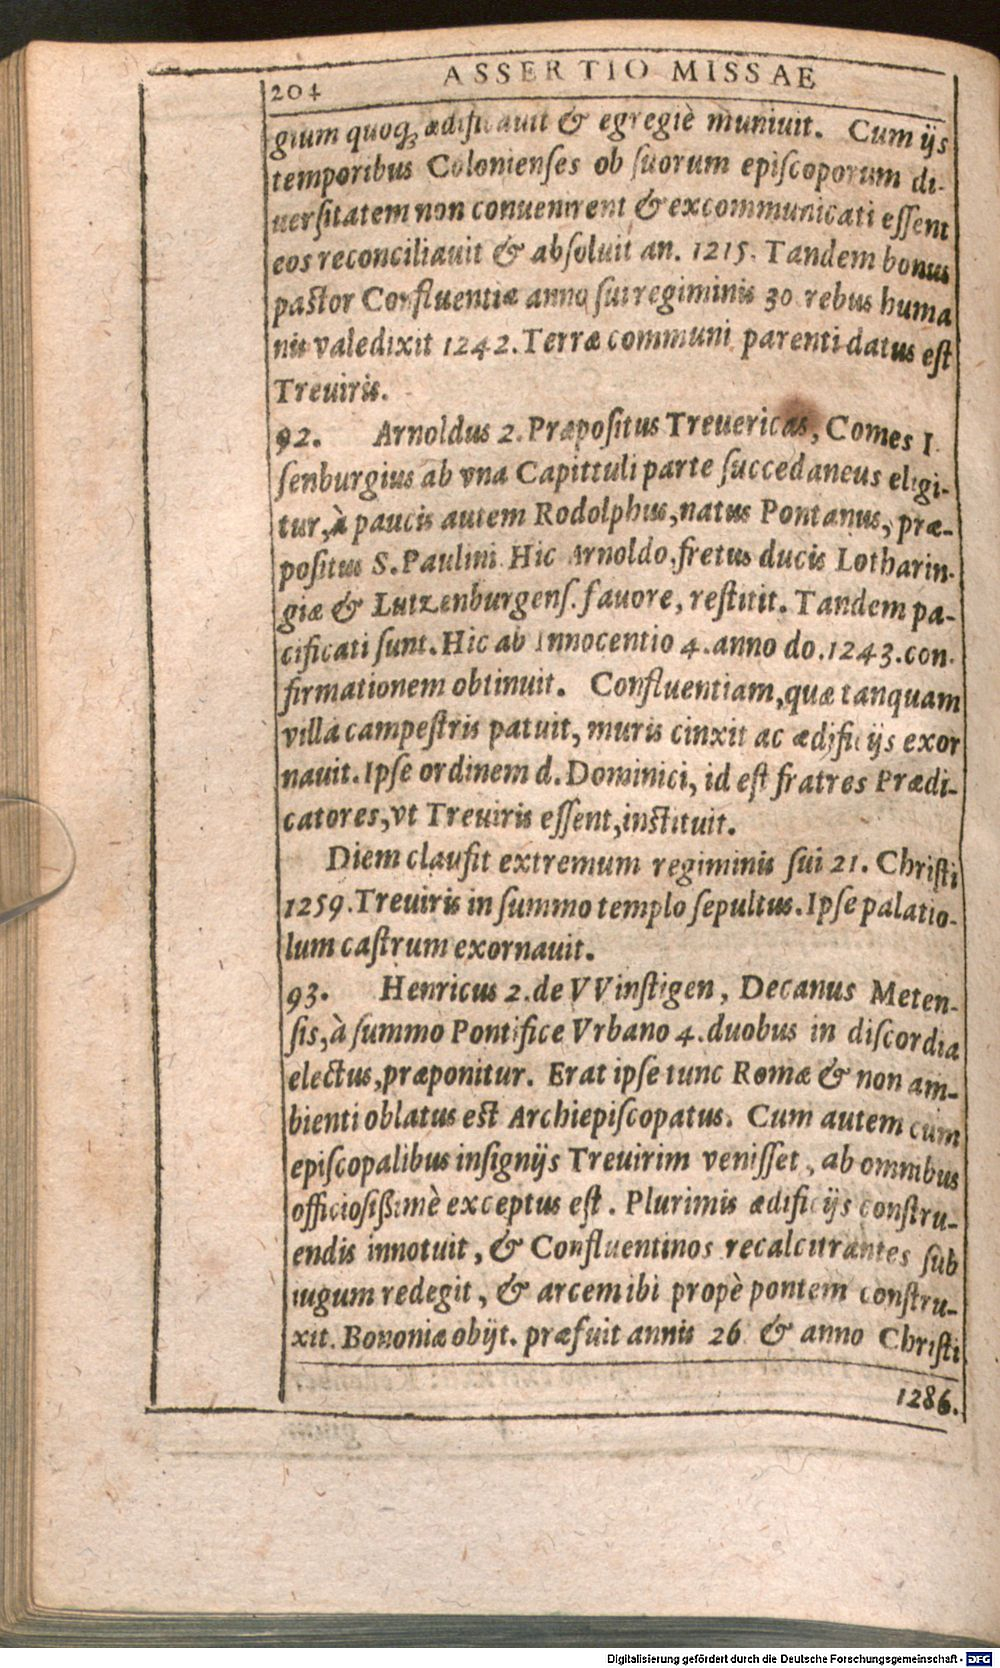 204 ASSERTIO MISSAE
gium quoqꝫ ædificauit & egregiè muniuit. Cum ijs
temporibus Colonienses ob suorum episcoporum di-
uersitatem non conuenirent & excommunicati essent
eos reconciliauit & absoluit an. 1215. Tandem bonus
pastor Confluentiæ anno sui regiminis 30 rebus huma
nis valedixit 1242. Terræ communi parenti datus est
Treuiris.
92. Arnoldus 2. Præpositus Treuericas, Comes I
senburgius ab vna Capittuli parte succedaneus eligi-
tur, à paucis autem Rodolphus, natus Pontanus, præ-
positus S. Paulini Hic Arnoldo, fretus ducis Lotharin-
giæ & Lutzenburgens. fauore, restitit. Tandem pa-
cificati sunt. Hic ab Innocentio 4. anno do. 1243. con-
firmationem obtinuit. Confluentiam, quæ tanquam
villa campestris patuit, muris cinxit ac ædificijs exor
nauit. Ipse ordinem d. Dominici, id est fratres Prædi-
catores, vt Treuiris essent, instituit.
Diem clausit extremum regiminis sui 21. Christi
1259. Treuiris in summo templo sepultus. Ipse palatio-
lum castrum exornauit.
93. Henricus 2. de VVinstigen, Decanus Meten-
sis, à summo Pontifice Vrbano 4. duobus in discordia
electus, præponitur. Erat ipse tunc Romæ & non am-
bienti oblatus est Archiepiscopatus. Cum autem cum
episcopalibus insignijs Treuirim venisset, ab omnibus
officiosißimè exceptus est. Plurimis ædificijs constru-
endis innotuit, & Confluentinos recalcitrantes sub
iugum redegit, & arcem ibi propè pontem constru-
xit. Bononiæ obijt. præfuit annis 26 & anno Christi
1286.
Digitalisierung gefördert durch die Deutsche Forschungsgemeinschaft - DFG